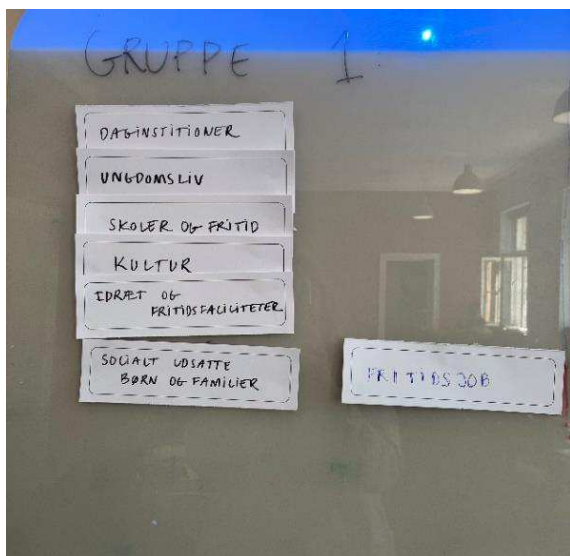 GRUPPE 1
DAGINSTITIONER
UNGDOMSLIV
SKOLER OG FRITID
KULTUR
IDRÆT OG
FRITIDSFACILITETER
SOCIALT UDSATTE
BØRN OG FAMILIER
FRITIDSJOB